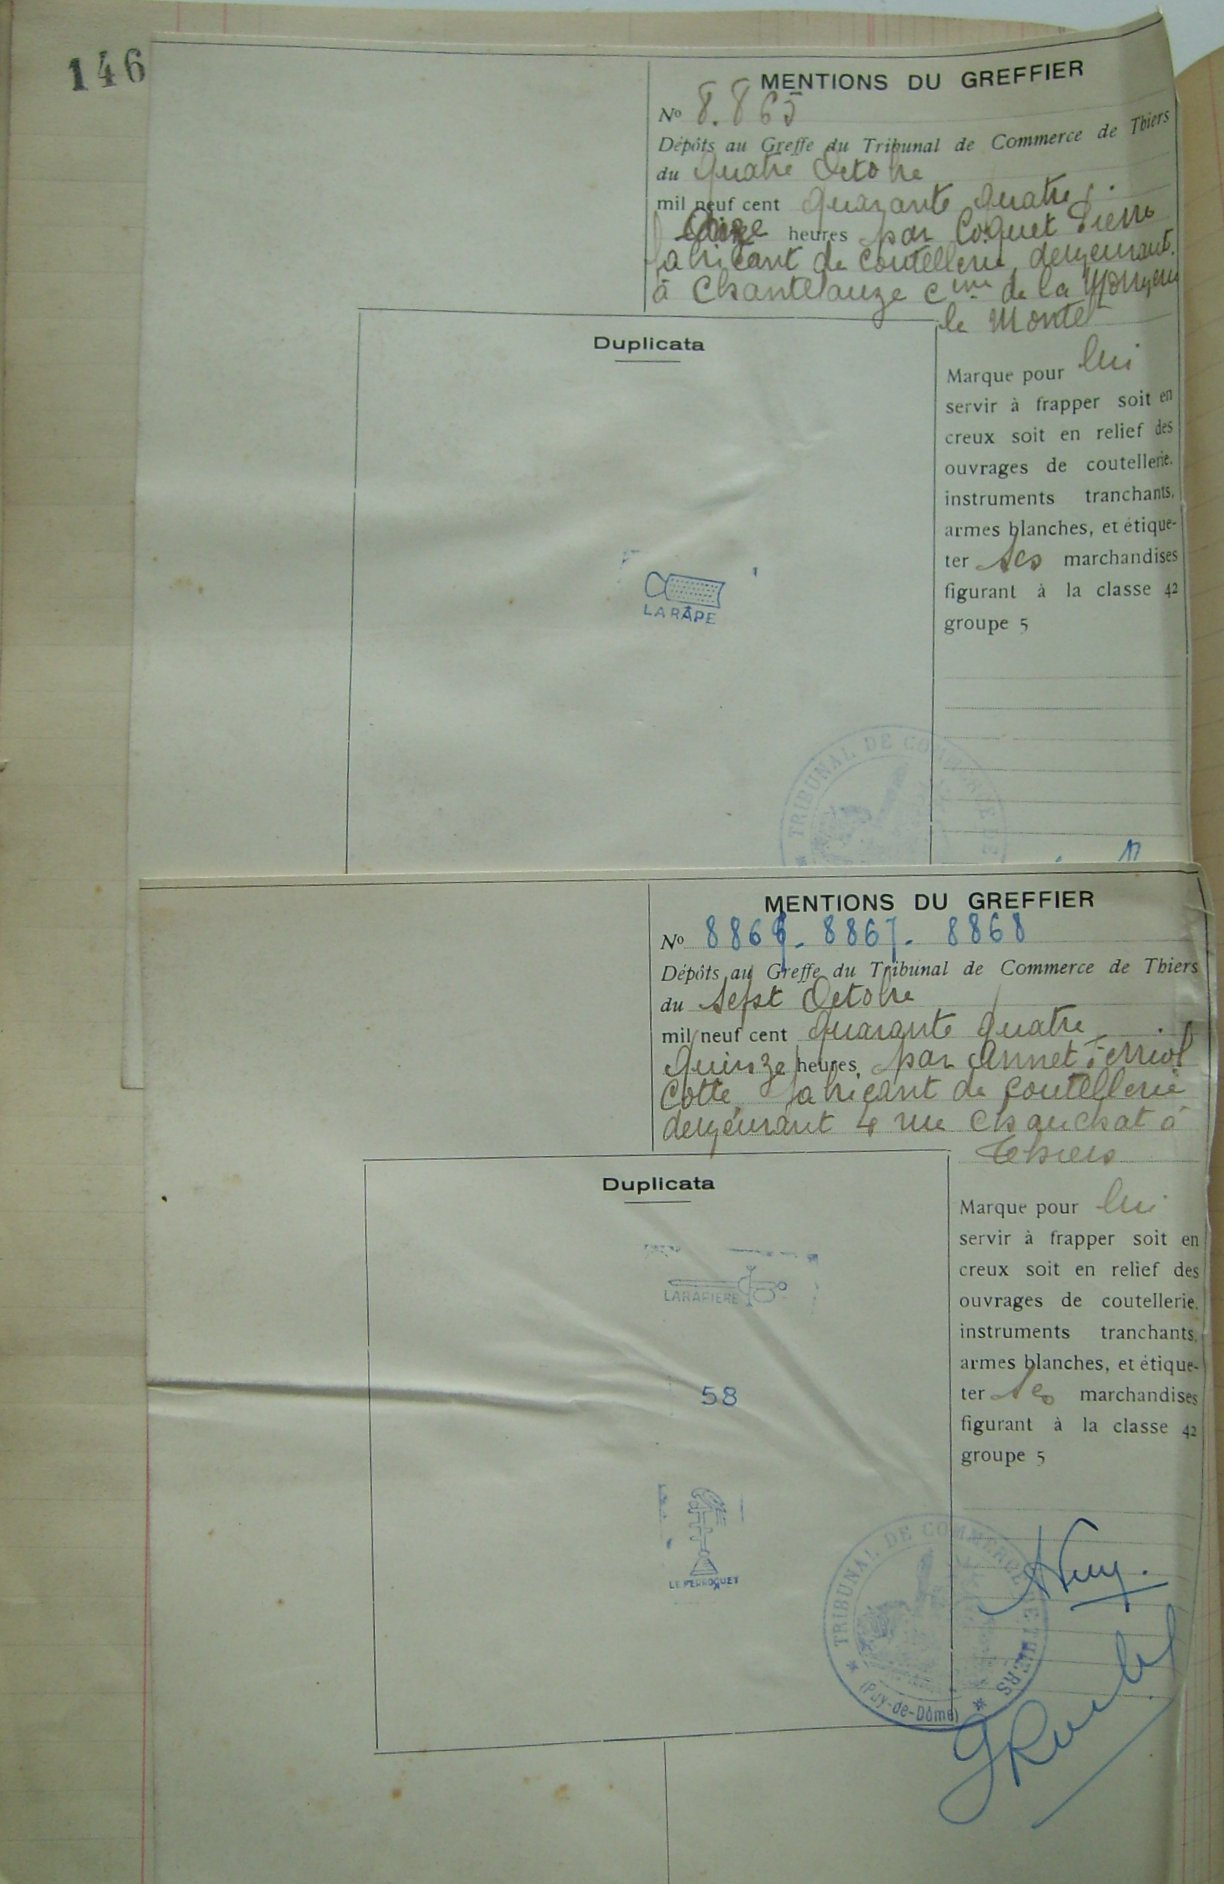 146
MENTIONS DU GREFFIER
No 8.865
Dépôts au Greffe du Tribunal de Commerce de Thiers
du quatre Octobre
mil neuf cent quarante quatre
heures par Coquet Pierre
fabricant de coutellerie demeurant
à Chantelauze cne de la Monnerie
le Montel
Duplicata
Marque pour lui
servir à frapper soit en
creux soit en relief des
ouvrages de coutellerie,
instruments tranchants,
armes blanches, et étique-
ter ses marchandises
figurant à la classe 42
groupe 5
LA RÂPE
* TRIBUNAL DE COMMERCE DE
MENTIONS DU GREFFIER
No 8866 - 8867 - 8868
Dépôts au Greffe du Tribunal de Commerce de Thiers
du sept Octobre
mil neuf cent quarante quatre
quinze heures, par Annet Ferriol
Cotte, fabricant de coutellerie
demeurant 4 rue Chauchat à
Thiers
Duplicata
Marque pour lui
servir à frapper soit en
creux soit en relief des
ouvrages de coutellerie,
instruments tranchants,
armes blanches, et étique-
ter ses marchandises
figurant à la classe 42
groupe 5
LA RAPIERE
58
LE PERROQUET
* TRIBUNAL DE COMMERCE DE THIERS *
(Puy-de-Dôme)